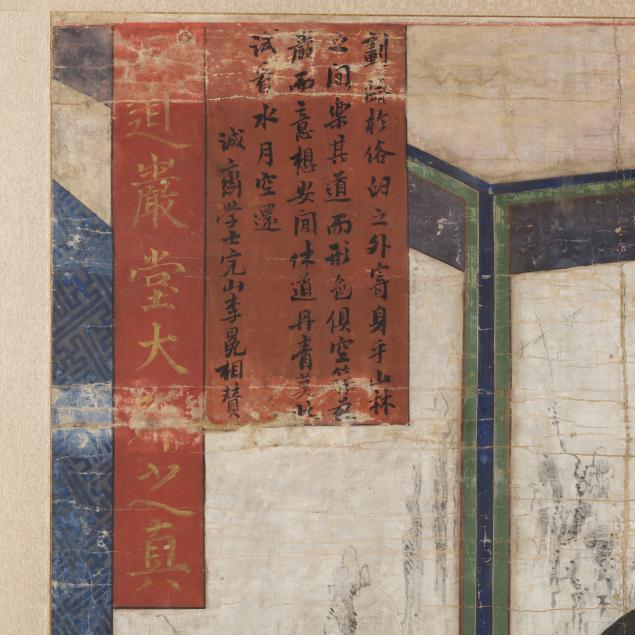 於俗臼之外寄身乎山林
之間樂其道而形色俱空
嚴而意想安閒休道丹青莫
試看水月空還
誠齋學士完山李晃相贊
巖堂大師之真